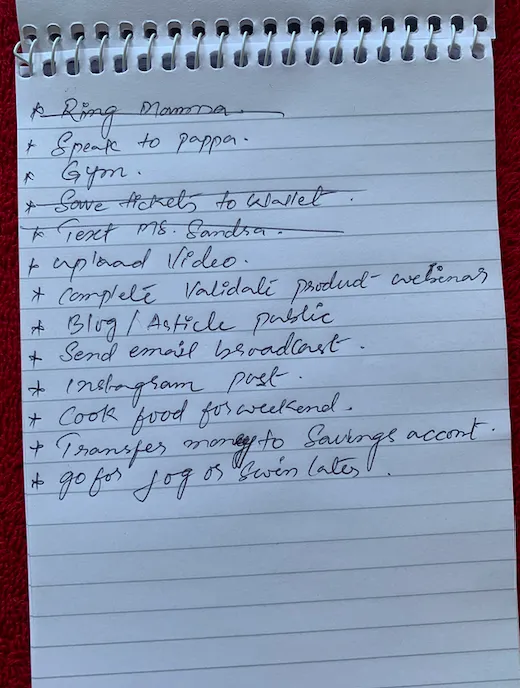 * Ring Mamma.
* Speak to pappa.
* Gym.
* Save tickets to wallet.
* Text Ms. Sandra.
* upload Video.
* Complete Validate product webinar
* Blog / Article public
* Send email broadcast.
* Instagram post.
* Cook food for weekend.
* Transfer money to Savings accont.
* go for jog or swim later.